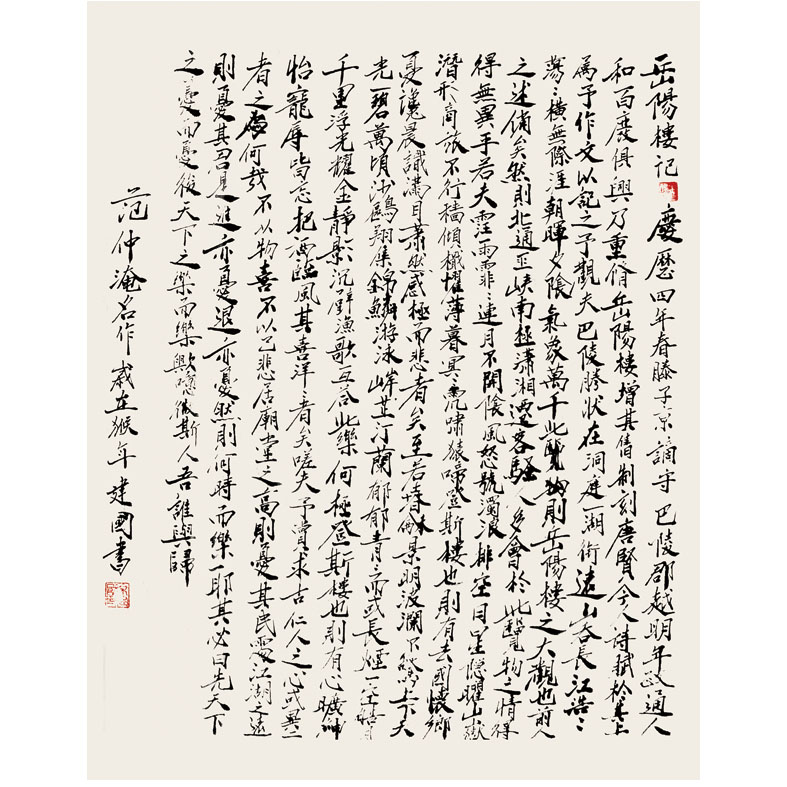 岳陽樓記 慶曆四年春滕子京謫守巴陵郡越明年政通人
和百廢俱興乃重脩岳陽樓增其舊制刻唐賢今人詩賦於其上
屬予作文以記之予觀夫巴陵勝狀在洞庭一湖銜遠山吞長江浩〻
蕩〻橫無際涯朝暉夕陰氣象萬千此覽物則岳陽樓之大觀也前人
之述備矣然則北通巫峽南極瀟湘遷客騷人多會於此覽物之情得
得無異乎若夫霪雨霏〻連月不開陰風怒號濁浪排空日星隱曜山嶽
潛形商旅不行檣傾檝摧薄暮冥〻虎嘯猿啼登斯樓也則有去國懷鄉
憂讒畏譏滿目蕭然感極而悲者矣至若春和景明波瀾不驚上下天
光一碧萬頃沙鷗翔集錦鱗游泳岸芷汀蘭郁郁青〻而或長煙一空皓月
千里浮光耀金靜影沉璧漁歌互答此樂何極登斯樓也則有心曠神
怡寵辱皆忘把酒臨風其喜洋〻者矣嗟夫予嘗求古仁人之心或異二
者之為何哉不以物喜不以己悲居廟堂之高則憂其民處江湖之遠
則憂其君是進亦憂退亦憂然則何時而樂耶其必曰先天下
之憂而憂後天下之樂而樂歟噫微斯人吾誰與歸
范仲淹名作歲在猴年建國書